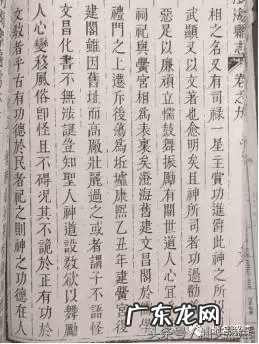 澄海縣志 卷之九
相之名又有司祿一星主賞功進爵此神之所
武顯又以文著也愈明矣且神所司者功過勸
惡足以廉頑立懦鼓舞振勵有關世道人心宜
祠祀與黌宮相為表裏矣澄海舊建文昌閣於
禮門之上遷斥後蕩為坵墟康熙乙丑年建黌宮後
建閣雖因舊址而高厰壯麗過之或者謂子不語怪
文昌化書不無涉誕豈知聖人神道設教欲以舞勵
人心變移風俗卽怪且不碍況其不詭於正有功於
文教者乎古有功德於民者祀之則神之功德在人
广东龙网
gdslw.com.cn